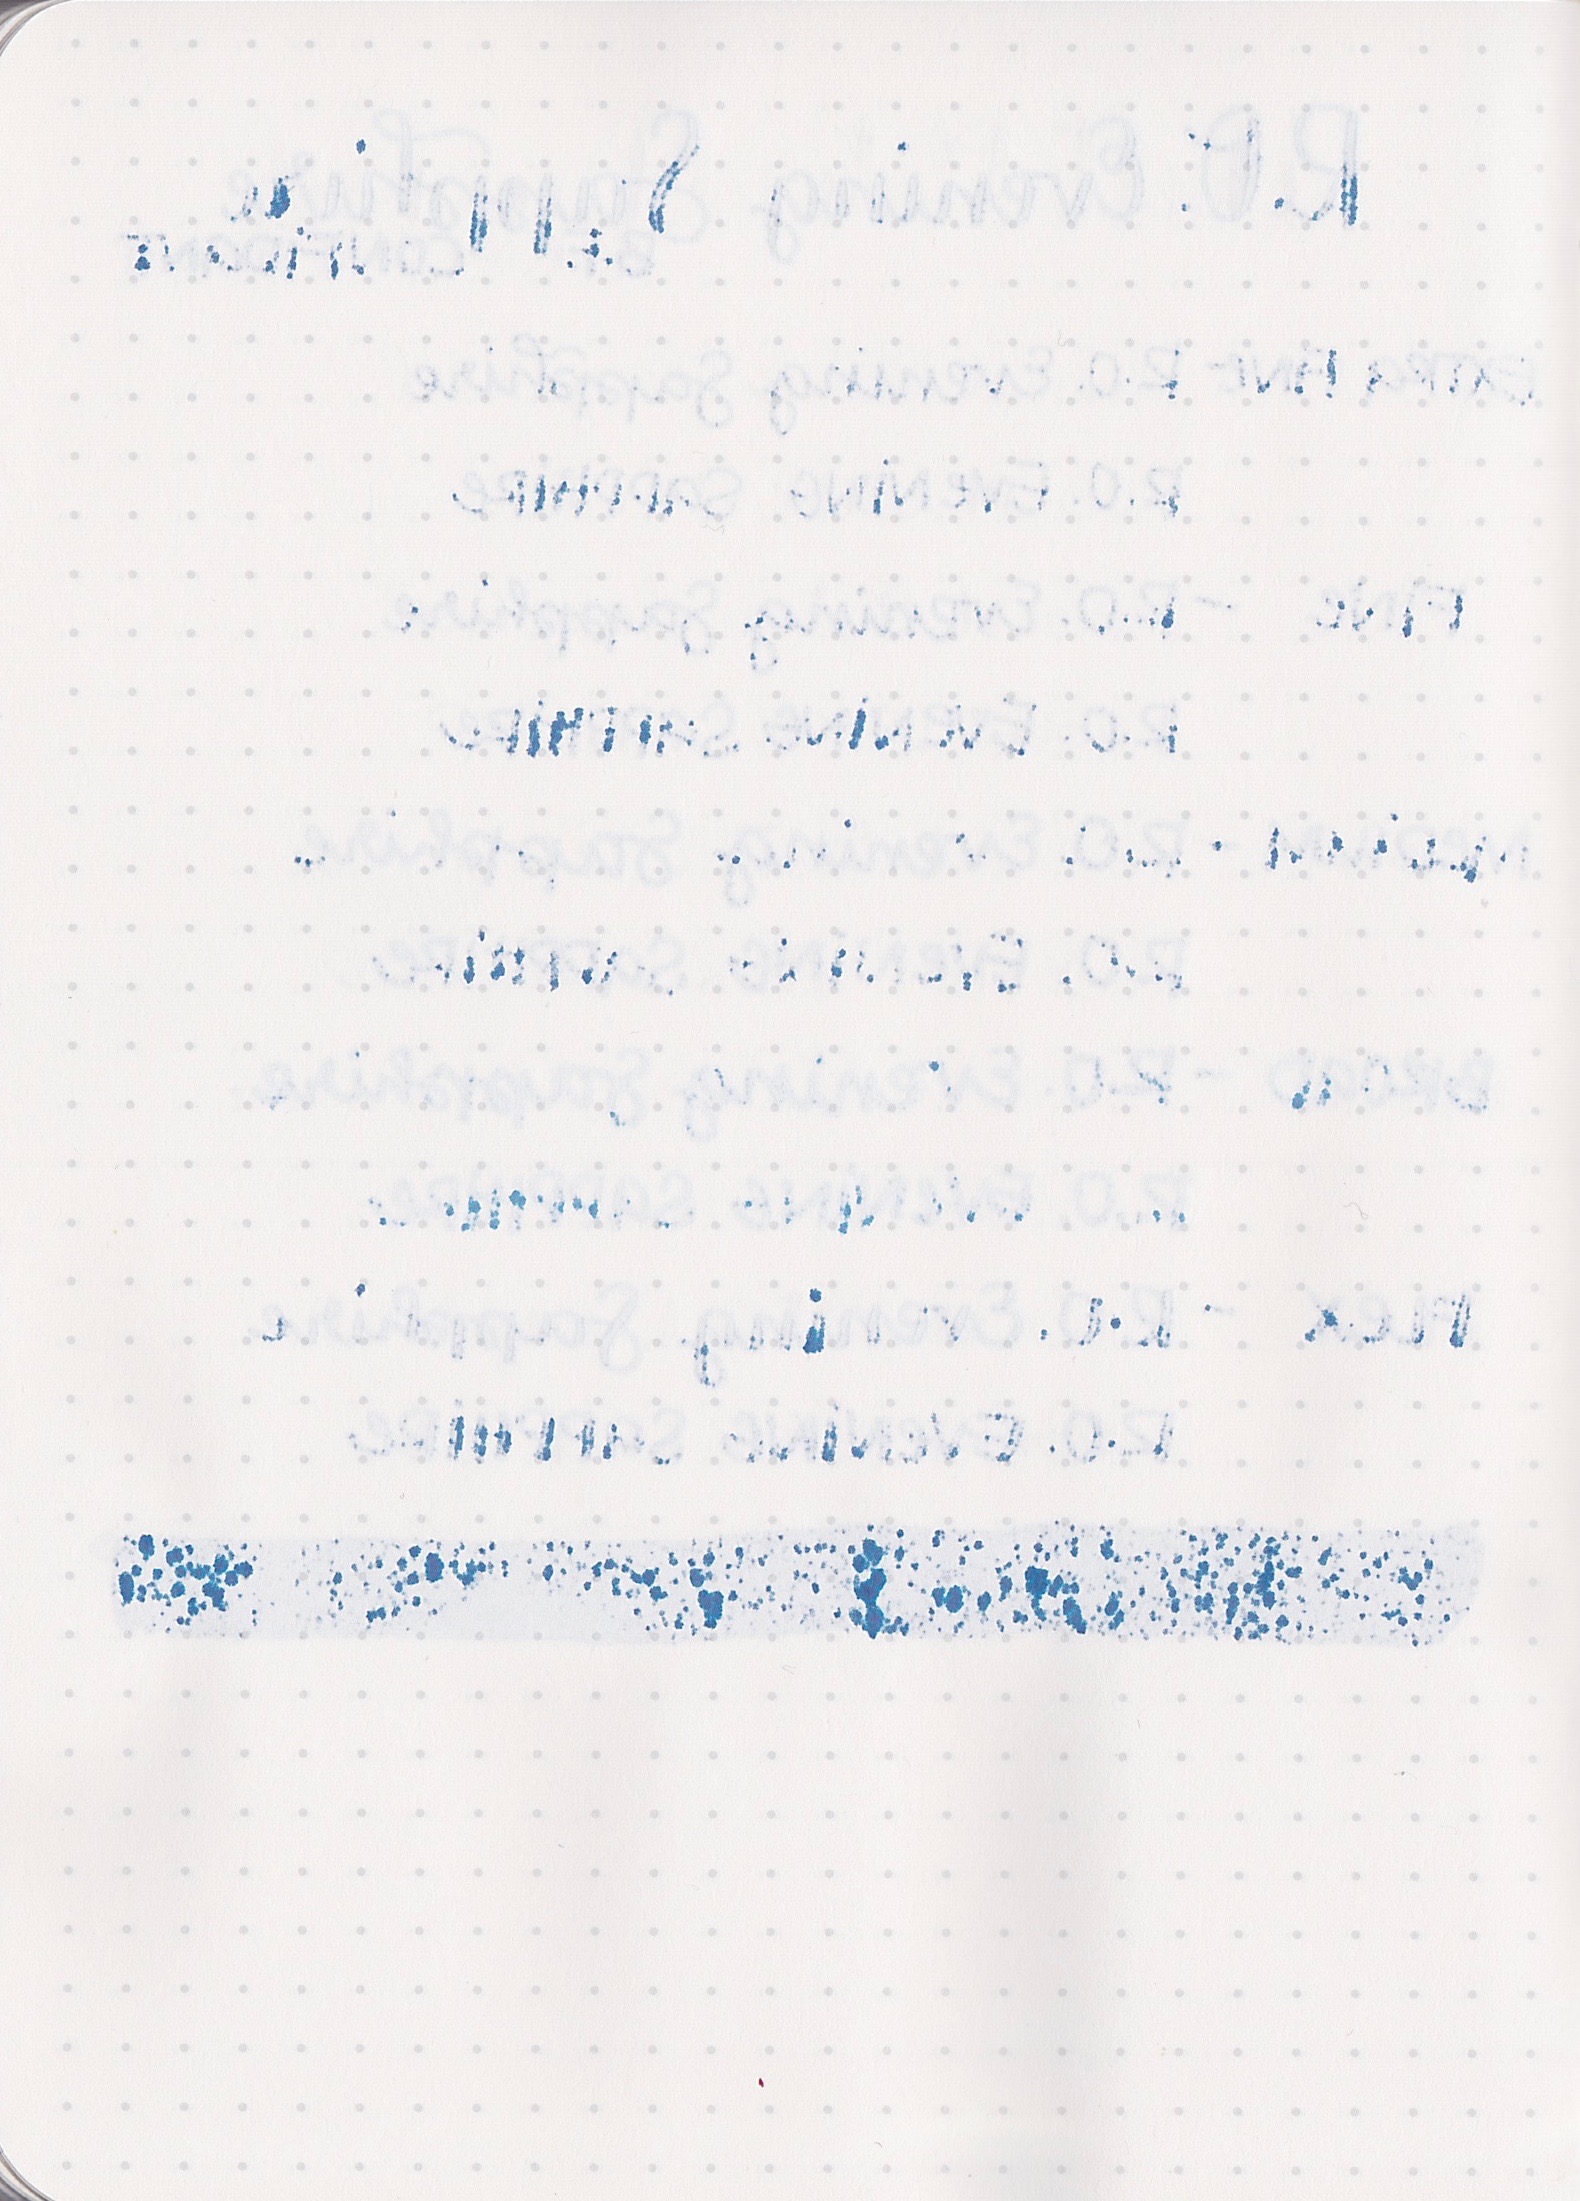 R.O. Evening Sapphire
B.F. CONFIDANT
EXTRA FINE - R.O. Evening Sapphire
R.O. EVENING SAPPHIRE
FINE - R.O. Evening Sapphire
R.O. EVENING SAPPHIRE
MEDIUM - R.O. Evening Sapphire
R.O. EVENING SAPPHIRE
BROAD - R.O. Evening Sapphire
R.O. EVENING SAPPHIRE
FLEX - R.O. Evening Sapphire
R.O. EVENING SAPPHIRE